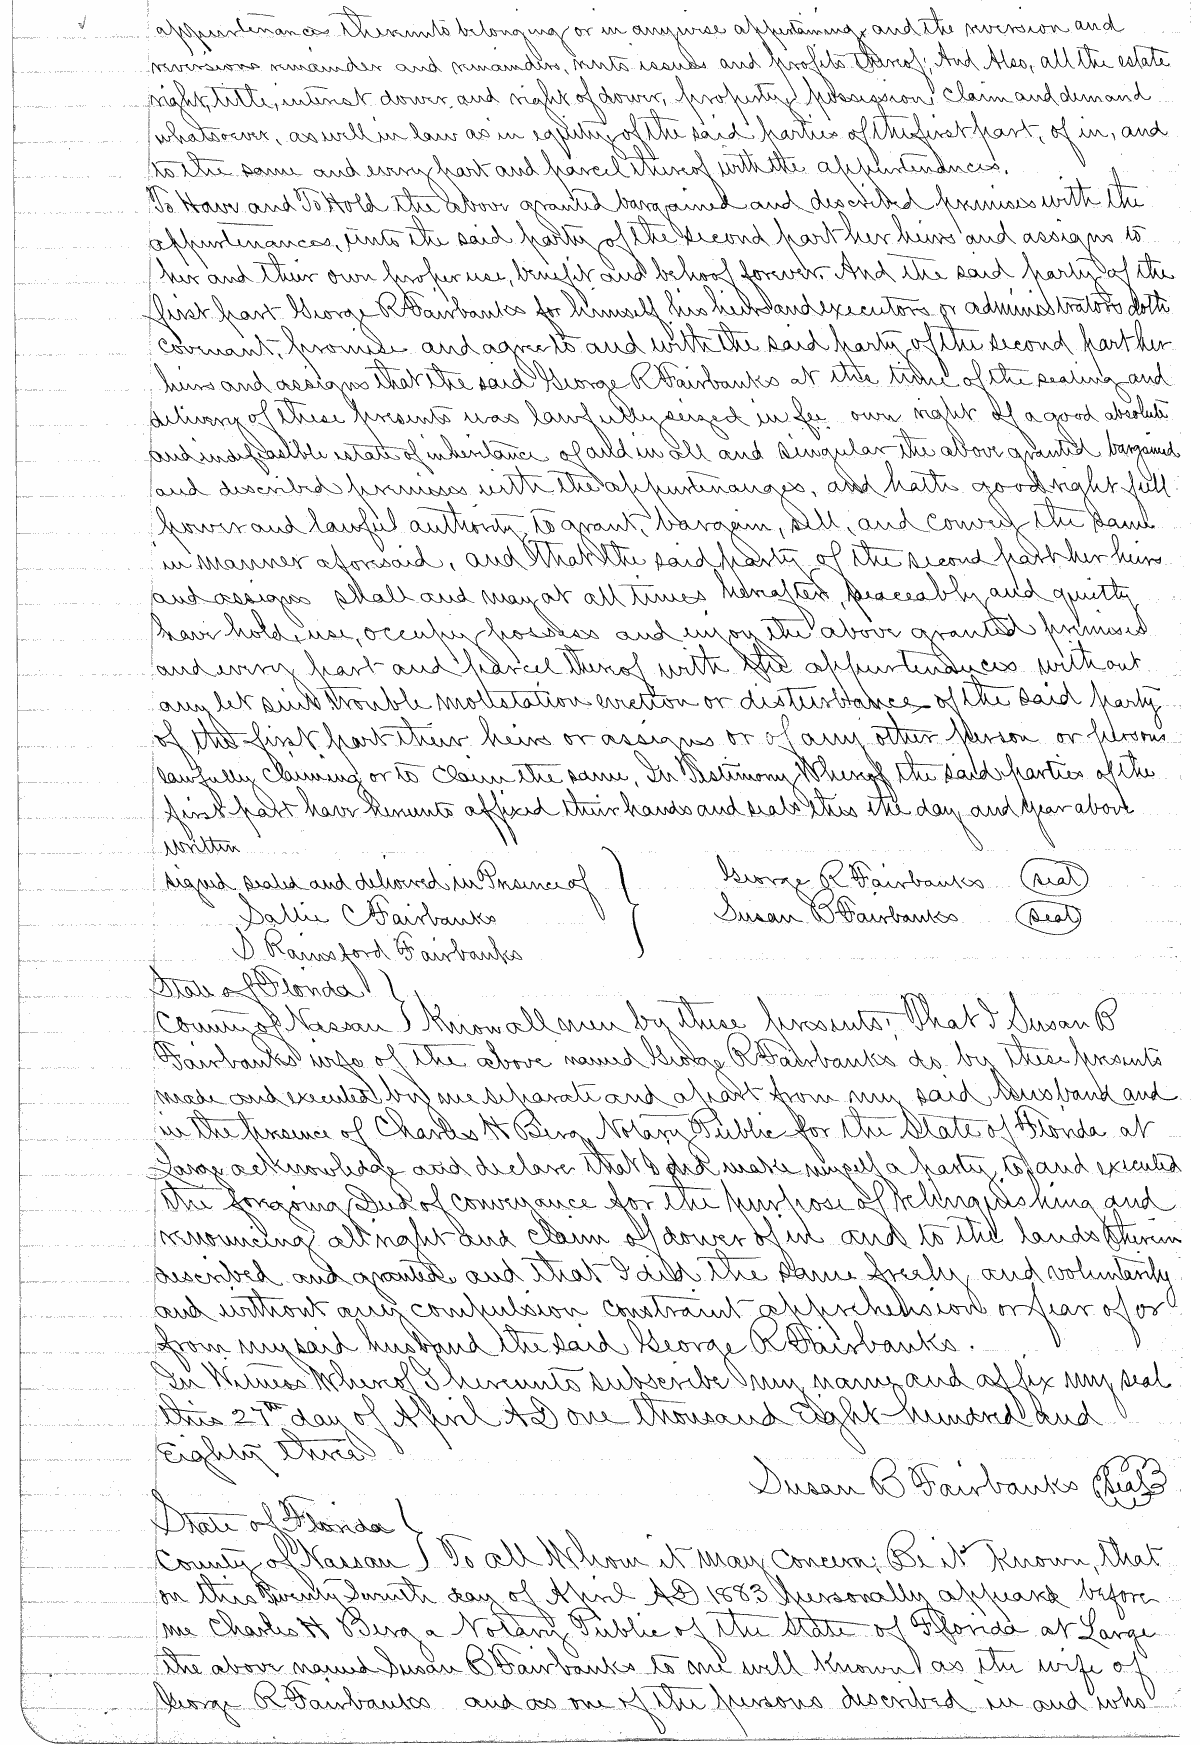 appurtenances thereunto belonging or in anywise appertaining, and the reversion and
reversions remainder and remainders, rents issues and profits thereof; And Also, all the estate
right, title, interest dower, and right of dower, property, possession claim and demand
whatsoever, as well in law as in equity, of the said parties of the first part, of in, and
to the same and every part and parcel thereof with the appurtenances.
To Have and To Hold the above granted bargained and described premises with the
appurtenances, unto the said party of the second part her heirs and assigns to
her and their own proper use, benefit and behoof forever. And the said party of the
first part George R Fairbanks for himself his heirs and executors or administrators doth
covenant, promise and agree to and with the said party of the second part her
heirs and assigns that the said George R Fairbanks at the time of the sealing and
delivery of these presents was lawfully seized in fee own right of a good absolute
and indefeasible estate of inheritance of and in all and singular the above granted bargained
and described premises with the appurtenances, and hath good right full
power and lawful authority to grant, bargain, sell, and convey the same
in manner aforesaid, and that the said party of the second part her heirs
and assigns shall and may at all times hereafter, peaceably and quietly
have hold, use, occupy possess and enjoy the above granted premises
and every part and parcel thereof with the appurtenances without
any let suit trouble molestation eviction or disturbance of the said party
of the first part their heirs or assigns or of any other person or persons
lawfully claiming or to claim the same, In Testimony Whereof the said parties of the
first part have hereunto affixed their hands and seals this the day and year above
written
signed sealed and delivered in Presence of } George R Fairbanks (seal)
Sallie C Fairbanks Susan B Fairbanks (seal)
Rainsford Fairbanks
State of Florida }
County of Nassau } Know all men by these presents, That I Susan B
Fairbanks wife of the above named George R Fairbanks do by these presents
made and executed by me separate and apart from my said husband and
in the presence of Charles H Berg Notary Public for the State of Florida at
Large acknowledge and declare that I did make myself a party to and executed
the forgoing Deed of conveyance for the purpose of relinquishing and
renouncing all right and claim of dower of in and to the lands therein
described and granted and that I did the same freely and voluntarily
and without any compulsion constraint apprehension or fear of or
from my said husband the said George R Fairbanks.
In Witness Whereof I hereunto subscribe my name and affix my seal
this 27th day of April AD one thousand Eight hundred and
Eighty three
Susan B Fairbanks (seal)
State of Florida }
County of Nassau } To all Whom it may concern; Be it Known, that
on this Twenty Seventh day of April AD 1883 personally appeared before
me Charles H Berg a Notary Public of the State of Florida at Large
the above named Susan B Fairbanks to me well known as the wife of
George R Fairbanks and as one of the persons described in and who